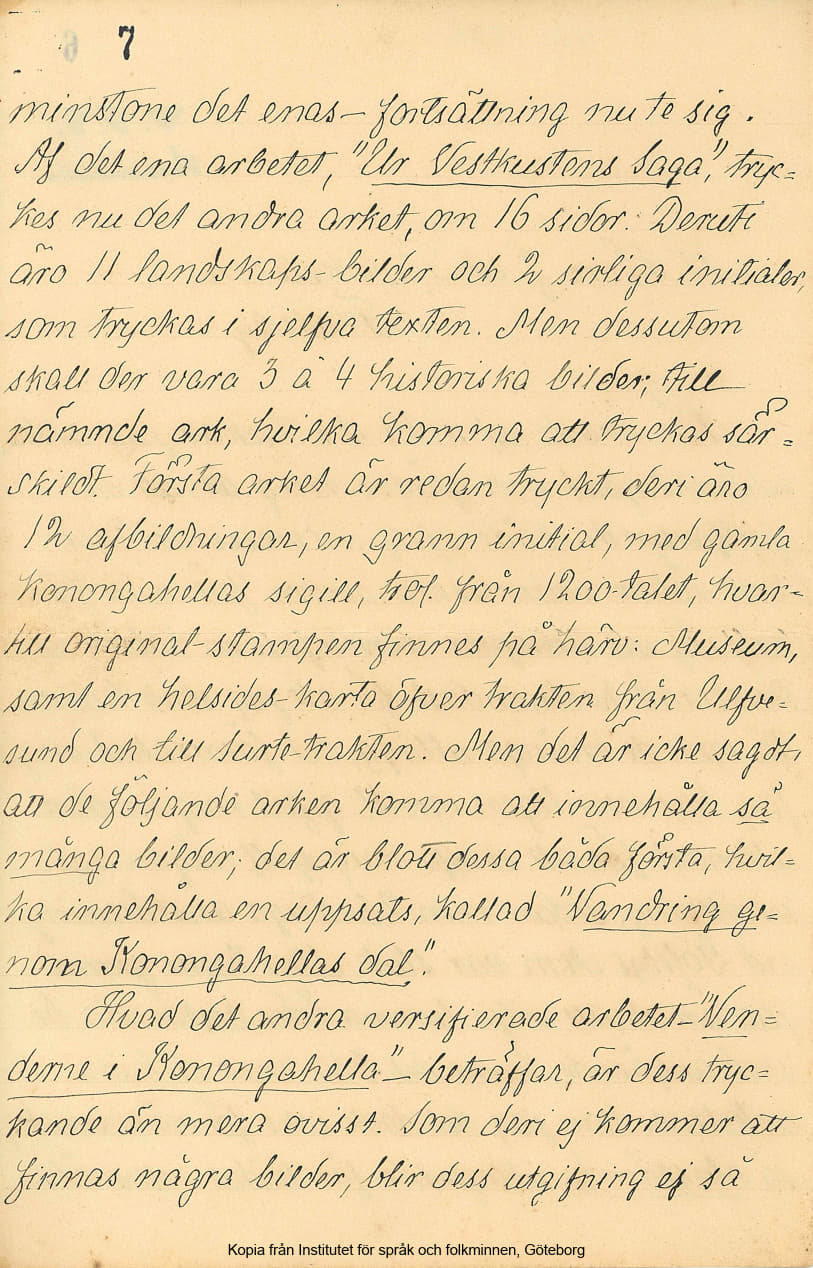 7
minstone det enas – fortsättning nu te sig.
Af det ena arbetet, "Ur Vestkustens Saga", tryc=
kes nu det andra arket, om 16 sidor. Deruti
äro 11 landskaps-bilder och 2 sirliga initialer,
som tryckas i sjelfva texten. Men dessutom
skall der vara 3 à 4 historiska bilder, till
nämnde ark, hvilka komma att tryckas sär=
skildt. Första arket är redan tryckt, deri äro
12 afbildningar, en grann initial, med gamla
Konongahellas sigill, från 1200-talet, hvar=
till original-stampen finnes på härv: Museum,
samt en helsides-karta öfver trakten från Ulfve=
sund och till Surte-trakten. Men det är icke sagdt,
att de följande arken komma att innehålla så
många bilder; det är blott dessa båda första, hvil=
ka innehålla en uppsats, kallad "Vandring ge=
nom Konongahellas dal".
Hvad det andra versifierade arbetet – "Ven=
derne i Konongahella" – beträffar, är dess tryc=
kande än mera ovisst. Som deri ej kommer att
finnas några bilder, blir dess utgifning ej så
Kopia från Institutet för språk och folkminnen, Göteborg